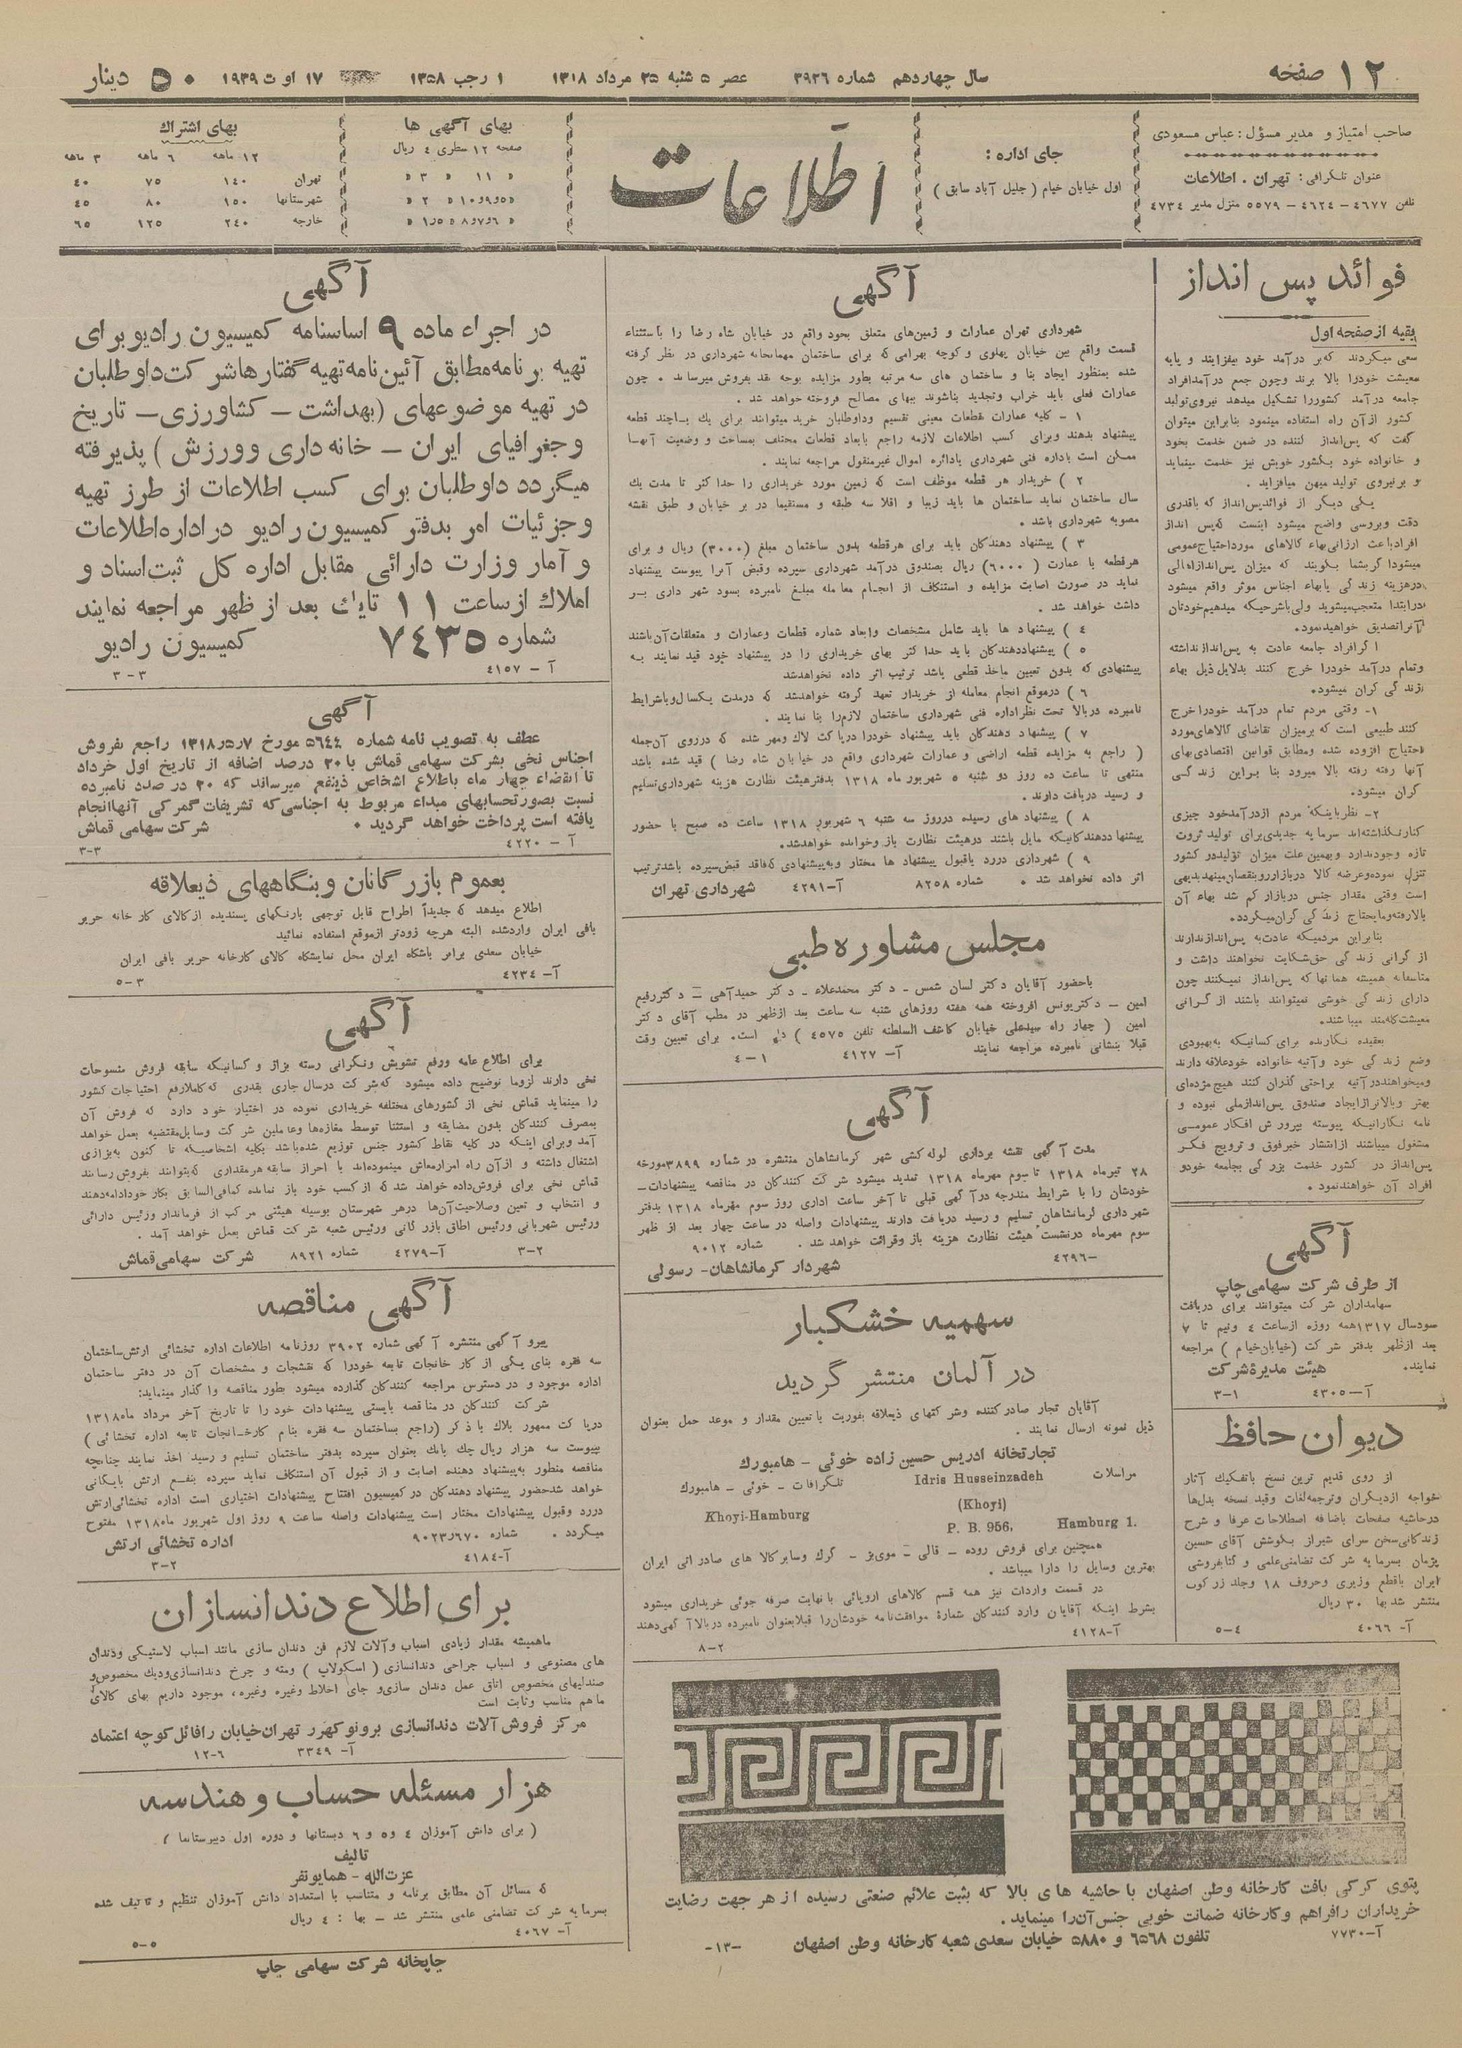 ۱۲ صفحه
سال چهاردهم شماره ۳۹۲۶
عصر ۵ شنبه ۲۵ مرداد ۱۳۱۸
۱ رجب ۱۳۵۸
۱۷ اوت ۱۹۳۹
۵۰ دینار
صاحب امتیاز و مدیر مسؤل : عباس مسعودی
عنوان تلگرافی : تهران . اطلاعات
تلفن ۴۶۷۷ – ۴۶۲۴ – ۵۵۷۹ منزل مدیر ۴۷۳۴
جای اداره :
اول خیابان خیام ( جلیل آباد سابق )
اطلاعات
بهای آگهی ها
صفحه ۱۲ سطری ٤ ریال
بهای اشتراك
۱۲ ماهه ۶ ماهه ۳ ماهه
تهران ۱۴۰ ۷۵ ۴۰
شهرستانها ۱۵۰ ۸۰ ۴۵
خارجه ۲۴۰ ۱۲۵ ۶۵
فوائد پس انداز
بقیه از صفحه اول
سعی میکردند که بر درآمد خود بیفزایند و پایه
معیشت خودرا بالا برند وچون جمع درآمدافراد
جامعه درآمد کشوررا تشکیل میدهد نیروی‌تولید
کشور ازآن راه استفاده مینمود بنابراین میتوان
گفت که پس‌انداز کننده در ضمن خدمت بخود
و خانواده خود بکشور خویش نیز خدمت مینماید
و برنیروی تولید میهن میافزاید .
یکی دیگر از فوائدپس انداز که باقدری
دقت وبررسی واضح میشود اینست که‌پس انداز
افرادباعث ارزانی‌بهاء کالاهای مورداحتیاج‌عمومی
میشوداگربشما بگویند که میزان پس‌اندازاهالی
درهزینه زندگی یابهاء اجناس موثر واقع میشود
درابتدا متعجب‌میشوید ولی‌باشرحیکه میدهیم‌خودتان
آنراتصدیق خواهیدنمود.
اگرافراد جامعه عادت به پس‌اندازنداشته
وتمام درآمد خودرا خرج کنند بدلایل‌ذیل بهاء
زندگی گران میشود.
۱- وقتی مردم تمام درآمد خودراخرج
کنند طبیعی است که برمیزان تقاضای کالاهای‌مورد
احتیاج افزوده شده ومطابق قوانین اقتصادی‌بهای
آنها رفته رفته بالا میرود بنا براین زندگی
گران میشود.
۲- نظرباینکه مردم ازدرآمدخود چیزی
کنارنگذاشته‌اند سرمایه جدیدی‌برای تولید ثروت
تازه وجودندارد وبهمین علت میزان تولیددر کشور
تنزل نموده‌وعرضه کالا دربازارروبنقصان‌مینهدبدیهی
است وقتی مقدار جنس دربازار کم شد بهاء آن
بالارفته‌ومایحتاج زندگی گران‌میگردد.
بنابراین مردمیکه عادت‌به پس‌اندازندارند
از گرانی زندگی حق‌شکایت نخواهند داشت و
متاسفانه همیشه همانها که پس‌انداز نمیکنند چون
دارای زندگی خوشی نمیتوانند باشند از گرانی
معیشت‌گله‌مند میباشند.
بعقیده نگارنده برای کسانیکه به‌بهبودی
وضع زندگی خود وآتیه خانواده خودعلاقه دارند
ومیخواهنددرآتیه براحتی گذران کنند هیچ مژده‌ای
بهتر وبالاترازایجاد صندوق پس‌اندازملی نبوده و
نامه نگارانیکه پیوسته بپرورش افکار عمومی
مشغول میباشند ازانتشار خبرفوق و ترویج فکر
پس‌انداز در کشور خدمت بزرگی بجامعه خودو
افراد آن خواهندنمود .
آگهی
از طرف شرکت سهامی چاپ
سهامداران شرکت میتوانند برای دریافت
سودسال ۱۳۱۷همه روزه ازساعت ٤ ونیم تا ۷
بعد ازظهر بدفتر شرکت (خیابان‌خیام ) مراجعه
نمایند. هیئت مدیرهٔ شرکت
آ—۴۳۰۵ ۳-۱
دیوان حافظ
از روی قدیم ترین نسخ باتفکیك آثار
خواجه ازدیگران وترجمه‌لغات وقید نسخه بدل‌ها
درحاشیه صفحات باضافه اصطلاحات عرفا و شرح
زندگانی‌سخن سرای شیراز بکوشش آقای حسین
پژمان بسرمایه شرکت تضامنی‌علمی و کتابفروشی
ایران باقطع وزیری وحروف ۱۸ وجلد زرکوب
منتشر شدبها ۳۰ ریال
آ- ۴۰۶۶ ۵-۴
آگهی
شهرداری تهران عمارات و زمین‌های متعلق بخود واقع در خیابان شاه رضا را باستثناء
قسمت واقع بین خیابان پهلوی و کوچه بهرامی که برای ساختمان مهمانخانه شهرداری در نظر گرفته
شده بمنظور ایجاد بنا و ساختمان های سه مرتبه بطور مزایده بوجه نقد بفروش میرساند . چون
عمارات فعلی باید خراب وتجدید بناشوند ببهای مصالح فروخته خواهد شد .
۱ - کلیه عمارات بقطعات معینی تقسیم وداوطلبان خرید میتوانند برای یك یاچند قطعه
پیشنهاد بدهند وبرای کسب اطلاعات لازمه راجع بابعاد قطعات مختلف بمساحت و وضعیت آنها
ممکن است باداره فنی شهرداری یادائره اموال غیرمنقول مراجعه نمایند .
۲ ) خریدار هر قطعه موظف است که زمین مورد خریداری را حداکثر تا مدت یك
سال ساختمان نماید ساختمان ها باید زیبا و اقلا سه طبقه و مستقیما در بر خیابان و طبق نقشه
مصوبه شهرداری باشد .
۳ ) پیشنهاد دهندگان باید برای هرقطعه بدون ساختمان مبلغ (۳۰۰۰) ریال و برای
هرقطعه با عمارت (۶۰۰۰) ریال بصندوق درآمد شهرداری سپرده وقبض آنرا پیوست پیشنهاد
نماید در صورت اصابت مزایده و استنکاف از انجام معامله مبلغ نامبرده بسود شهر داری بر
داشت خواهد شد .
٤ ) پیشنهاد ها باید شامل مشخصات وابعاد شماره قطعات وعمارات و متعلقات آن‌باشند
۵ ) پیشنهاددهندگان باید حداکثر بهای خریداری را در پیشنهاد خود قید نمایند به
پیشنهادی که بدون تعیین ماخذ قطعی باشد ترتیب اثر داده نخواهدشد
۶ ) درموقع انجام معامله از خریدار تعهد گرفته خواهدشد که درمدت یکسال‌وباشرایط
نامبرده دربالا تحت نظراداره فنی شهرداری ساختمان لازم‌را بنا نمایند .
۷ ) پیشنهاد دهندگان باید پیشنهاد خودرا درپاکت لاك ومهر شده که درروی آن‌جمله
( راجع به مزایده قطعه اراضی و عمارات شهرداری واقع در خیابان شاه رضا ) قید شده باشد
منتهی تا ساعت ده روز دو شنبه ۵ شهریور ماه ۱۳۱۸ بدفترهیئت نظارت هزینه شهرداری‌تسلیم
و رسید دریافت دارند .
۸ ) پیشنهاد های رسیده درروز سه شنبه ۶ شهریور ۱۳۱۸ ساعت ده صبح با حضور
پیشنهاددهندگانیکه مایل باشند درهیئت نظارت باز وخوانده خواهدشد.
۹ ) شهرداری دررد یاقبول پیشنهاد ها مختار وبه‌پیشنهادی که‌فاقد قبض‌سپرده باشدترتیب
اثر داده نخواهد شد . شماره ۸۲۵۸ آ-۴۲۹۱ شهرداری تهران
مجلس مشاوره طبی
باحضور آقایان دکتر لسان شمس - دکتر محمدعلاء - دکتر حمیدآهی – دکتررفیع
امین – دکتریونس افروخته همه هفته روزهای شنبه سه ساعت بعد ازظهر در مطب آقای دکتر
امین ( چهار راه سیدعلی خیابان کاشف السلطنه تلفن ۴۵۷۵ ) دایر است. برای تعیین وقت
قبلا بنشانی نامبرده مراجعه نمایند آ- ۴۱۲۷ ۴-۱
آگهی
مدت آگهی نقشه برداری لوله‌کشی شهر کرمانشاهان منتشره در شماره ۳۸۹۹مورخه
۲۸ تیرماه ۱۳۱۸ تا سوم مهرماه ۱۳۱۸ تمدید میشود شرکت کنندگان در مناقصه پیشنهادات-
خودشان را با شرایط مندرجه درآگهی قبلی تا آخر ساعت اداری روز سوم مهرماه ۱۳۱۸ بدفتر
شهرداری کرمانشاهان تسلیم و رسید دریافت دارند پیشنهادات واصله در ساعت چهار بعد از ظهر
سوم مهرماه درنشست هیئت نظارت هزینه باز وقرائت خواهد شد . شماره ۹۰۱۲
-۴۲۹۶ شهردار کرمانشاهان- رسولی
سهمیه خشکبار
در آلمان منتشر گردید
آقایان تجار صادرکننده وشرکتهای ذیعلاقه بفوریت باتعیین مقدار و موعد حمل بعنوان
ذیل نمونه ارسال نمایند .
تجارتخانه ادریس حسین زاده خوئی - هامبورك
مراسلات Idris Husseinzadeh تلگرافات - خوئی - هامبورك
(Khoyi) Khoyi-Hamburg
P. B. 956, Hamburg 1.
همچنین برای فروش روده – قالی – موی‌بز – کرك وسایرکالا های صادراتی ایران
بهترین وسایل را دارا میباشد .
در قسمت واردات نیز همه قسم کالاهای اروپائی با نهایت صرفه جوئی خریداری میشود
بشرط اینکه آقایان وارد کنندگان شمارهٔ موافقت‌نامه خودشان‌را قبلابعنوان نامبرده دربالاآگهی‌دهند
آ-۴۱۲۸ ۸-۲
پتوی کرکی بافت کارخانه وطن اصفهان با حاشیه های بالا که بثبت علائم صنعتی رسیده از هر جهت رضایت
خریداران رافراهم وکارخانه ضمانت خوبی جنس‌آن‌را مینماید .
آ-۷۷۳۰ تلفون ۶۵۶۸ و ۵۸۸۰ خیابان سعدی شعبه کارخانه وطن اصفهان -۱۳-
آگهی
در اجراء ماده ۹ اساسنامه کمیسیون رادیو برای
تهیه برنامه‌مطابق آئین‌نامه‌تهیه‌گفتارهاشرکت‌داوطلبان
در تهیه موضوعهای (بهداشت – کشاورزی – تاریخ
وجغرافیای ایران – خانه داری وورزش ) پذیرفته
میگردد داوطلبان برای کسب اطلاعات از طرز تهیه
وجزئیات امر بدفتر کمیسیون رادیو دراداره‌اطلاعات
و آمار وزارت دارائی مقابل اداره کل ثبت‌اسناد و
املاك ازساعت ۱۱ تایك بعد از ظهر مراجعه نمایند
شماره ۷۴۳۵ کمیسیون رادیو
آ - ۴۱۵۷ ۳-۳
آگهی
عطف به تصویب نامه شماره ۵۶۴۴ مورخ ۱۳۱۸٫۵٫۷ راجع بفروش
اجناس نخی بشرکت سهامی قماش با ۲۰ درصد اضافه از تاریخ اول خرداد
تا انقضاء چهار ماه باطلاع اشخاص ذینفع میرساند که ۲۰ در صدد نامبرده
نسبت بصورتحسابهای مبداء مربوط به اجناسی‌که تشریفات گمرکی آنهاانجام
یافته است پرداخت خواهد گردید . شرکت سهامی قماش
آ - ۴۲۲۰ ۳-۳
بعموم بازرگانان وبنگاههای ذیعلاقه
اطلاع میدهد که جدیداً اطراح قابل توجهی بارنگهای پسندیده ازکالای کارخانه حریر
بافی ایران واردشده البته هرچه زودتر ازموقع استفاده نمائید
خیابان سعدی برابر باشگاه ایران محل نمایشگاه کالای کارخانه حریر بافی ایران
آ- ۴۲۳۴ ۵-۳
آگهی
برای اطلاع عامه ورفع تشویش ونگرانی رسته بزاز و کسانیکه سابقه فروش منسوجات
نخی دارند لزوما توضیح داده میشود که شرکت درسال جاری بقدری که‌کاملارفع احتیاجات کشور
را مینماید قماش نخی از کشورهای مختلفه خریداری نموده در اختیار خود دارد که فروش آن
بمصرف کنندگان بدون مضایقه و استثنا توسط مغازه‌ها وعاملین شرکت وسایل‌مقتضیه بعمل خواهد
آمد وبرای اینکه در کلیه نقاط کشور جنس توزیع شده‌باشد بکلیه اشخاصیکه تا کنون به‌بزازی
اشتغال داشته و ازآن راه امرارمعاش مینموده‌اند با احراز سابقه هرمقداری که‌بتوانند بفروش رسانند
قماش نخی برای فروش‌داده خواهد شد که از کسب خود باز نمانده کمافی‌السابق بکار خودادامه‌دهند
و انتخاب و تعین وصلاحیت‌آن‌ها درهر شهرستان بوسیله هیئتی مرکب از فرماندار ورئیس دارائی
ورئیس شهربانی ورئیس اطاق بازرگانی ورئیس شعبه شرکت قماش بعمل خواهد آمد .
۳-۲ آ-۴۲۷۹ شماره ۸۹۲۱ شرکت سهامی قماش
آگهی مناقصه
پیرو آگهی منتشره آگهی شماره ۳۹۰۲ روزنامه اطلاعات اداره تخشائی ارتش‌ساختمان
سه فقره بنای یکی از کارخانجات تابعه خودرا که نقشجات و مشخصات آن در دفتر ساختمان
اداره موجود و در دسترس مراجعه کنندگان گذارده میشود بطور مناقصه واگذار مینماید:
شرکت کنندگان در مناقصه بایستی پیشنهادات خود را تا تاریخ آخر مرداد ماه۱۳۱۸
درپاکت ممهور بلاك باذکر (راجع بساختمان سه فقره بنام کارخانجات تابعه اداره تخشائی )
بپیوست سه هزار ریال چك بانك بعنوان سپرده بدفتر ساختمان تسلیم و رسید اخذ نمایند چنانچه
مناقصه منطور به‌پیشنهاد دهنده اصابت و از قبول آن استنکاف نماید سپرده بنفع ارتش بایگانی
خواهد شدحضور پیشنهاد دهندگان در کمیسیون افتتاح پیشنهادات اختیاری است اداره تخشائی‌ارتش
دررد وقبول پیشنهادات مختار است پیشنهادات واصله ساعت ۹ روز اول شهریور ماه۱۳۱۸ مفتوح
میگردد . شماره ۹۰۲۳٫۶۷۰ اداره تخشائی ارتش
آ-۴۱۸۴ ۳-۲
برای اطلاع دندانسازان
ماهمیشه مقدار زیادی اسباب وآلات لازم فن دندان سازی مانند اسباب لاستیکی ودندان
های مصنوعی و اسباب جراحی دندانسازی ( اسکولاپ ) ومته و چرخ دندانسازی‌ودیك مخصوص‌و
صندلیهای مخصوص اتاق عمل دندان سازی‌و جای اخلاط وغیره وغیره، موجود داریم بهای کالای
ماهم مناسب وثابت است
مرکز فروش آلات دندانسازی برونوکهرر تهران‌خیابان رافائل‌کوچه اعتماد
آ- ۳۳۴۹ ۱۲-۶
هزار مسئله حساب وهندسه
( برای دانش آموزان ٤ و۵ و ۶ دبستانها و دوره اول دبیرستانها )
تالیف
عزت‌الله - همایونفر
که مسائل آن مطابق برنامه و متناسب با استعداد دانش آموزان تنظیم و تالیف شده
بسرمایه شرکت تضامنی علمی منتشر شد - بها : ٤ ریال
آ- ۴۰۶۷ ۵-۵
چاپخانه شرکت سهامی چاپ